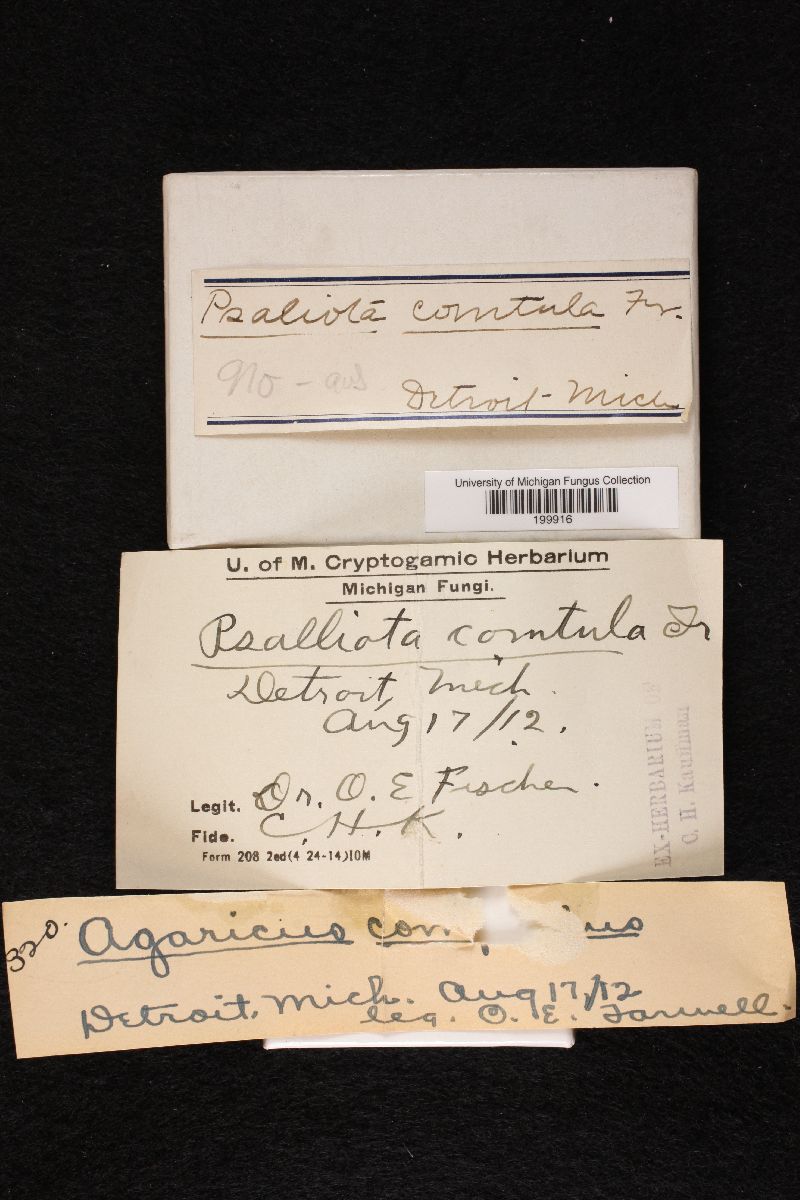 Psaliota comtula Fr.
No - aus
Detroit - Mich
University of Michigan Fungus Collection
199916
U. of M. Cryptogamic Herbarium
Michigan Fungi.
Psalliota comtula Fr
Detroit, Mich.
Aug 17/12.
Legit. Dr. O. E Fischer.
Fide. C. H. K.
Form 208 2ed(4 24-14)10M
EX-HERBARIUM OF
C. H. Kauffman
320.
Agaricus
Detroit, Mich. Aug 17/12
leg. O. E. Farwell.